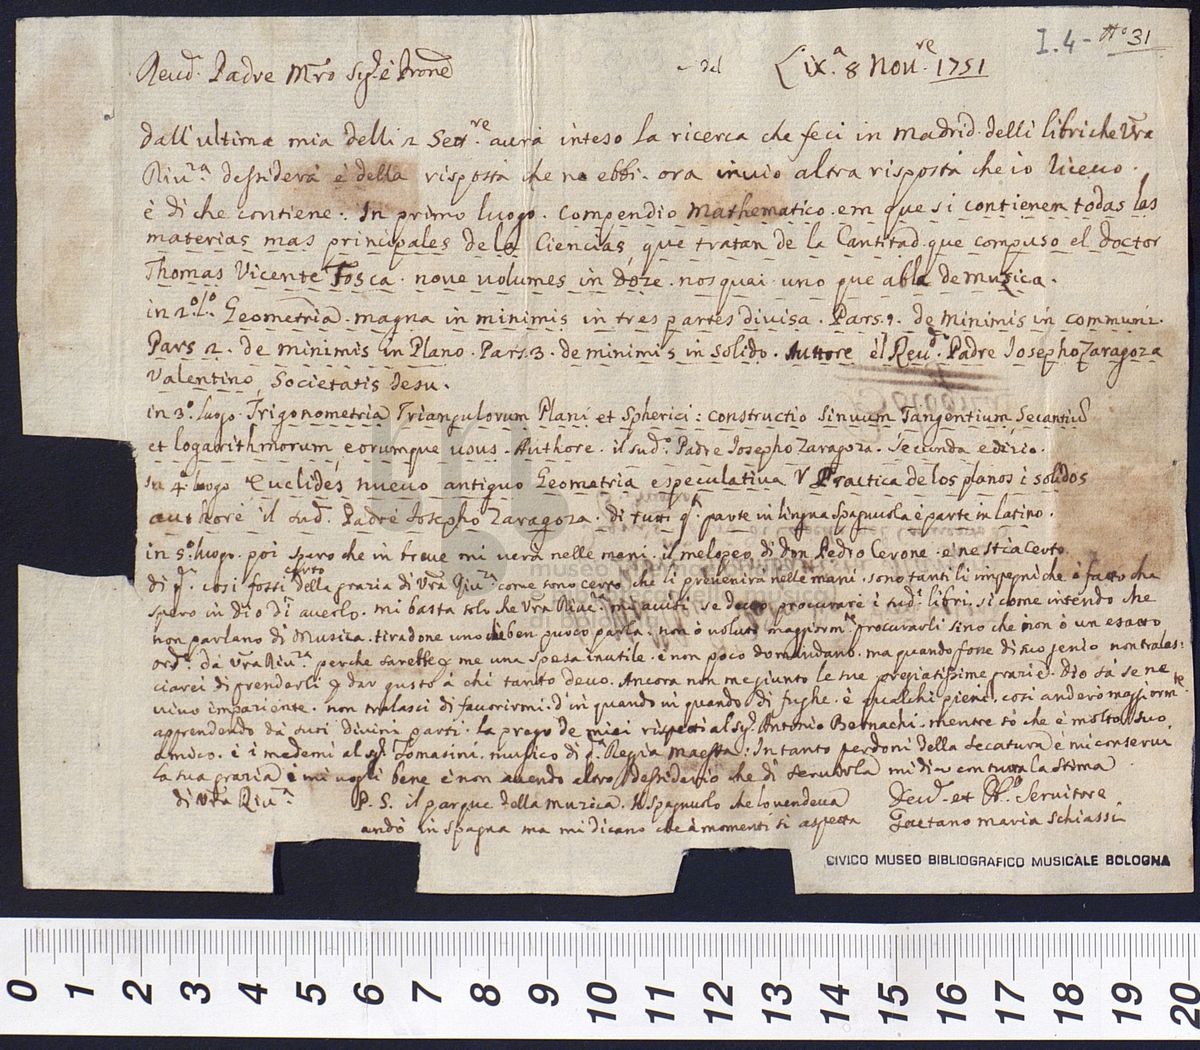 I.4 - No 31
Reud. Padre Mro Sigr. è Prone
Lixa. 8 Novre. 1751
dall'ultima mia delli 2 Settre. aurà inteso la ricerca che feci in Madrid. delli libri che Vra
Riura. dessiderà è della risposta che ne ebbi. ora inuio altra risposta che io riceuo.
è di che contiene: In primo luogo. Compendio Mathematico. em que si contienem todas las
materias mas principales de la Ciencias, que tratan de la Cantitad. que compuso el doctor
Thomas Vicente Tosca. noue volumes in doze. nos quai. uno que abla de Muzica.
in 2o. lo. Geometria. magna in minimis in tres partes divisa. Pars. 1. de Minimis in communi.
Pars 2. de minimis in Plano. Pars. 3. de minimis in solido. Auttore èl Reud. Padre Josepho Zaragoza
Valentino, Societatis Jesu.
in 3o. luogo. Trigonometria Triangulorum Plani et Spherici: constructio sinuum Tangentium Secantiu
et logarithmorum eorumque usus. Authore. il sudo. Padre Josepho Zaragoza. Secunda edizio.
in 4o luogo Euclides nueuo antiguo Geometria especulatiua Y Practica de los planos i solidos
authore il sud. Padre Josepho Zaragoza. di tutti qti. parte in lingua Spagnuola è parte in latino.
in 5o. luogo. poi spero che in breue mi uerà nelle mani. il melopeo di don Pedro Cerone. e ne stia certo
di qo. cosi fossi certo della grazia di Vra Riura. come sono certo che li prevenirà nelle mani. sono tanti li impegni che ò fatto che
spero in Dio di auerlo. mi basta solo che Vra Riura. mi auisi se deuo procurare i sudi. libri. si come intendo che
non parlano di Musica. tiradone uno che ben puoco parla. non ò voluto maggiormte procurarli sino che non ò un esatto
ordi. da Vra Riura. perche sarebbe p me una spesa inutile. è non poco domandano. ma quando fosse di suo genio non trales:
ciarei di prenderli p dar gusto à chi tanto deuo. Ancora non me giunto le sue pregiatissime grazie. Dio sà se ne
uiuo impaziente. non tralasci di fauorirmi. d'in quando in quando di fughe. è qualchi pieni. cosi anderò maggiormte.
apprendendo da suoi diuini parti. la prego de miei rispetti al sigr. Antonio Bernachi. mentre sò che è molto suo
amico. è i medemi al sigr. Tomasini. musico di qa. Reggia Maestà: In tanto perdoni della seccatura è mi conserui
la sua grazia è mi uogli bene è non auendo altro dessiderio che di seruirla mi dico con tutta la stima
di Vra Riura.
P. S. il parque della muzica. il spagnuolo che lo vendeua
andò in spagna ma mi dicano che à momenti si aspetta
Deud. et Obo Seruitore
Gaetano Maria Schiassi
CIVICO MUSEO BIBLIOGRAFICO MUSICALE BOLOGNA
museo internazionale
e biblioteca della musica
di bologna
0 1 2 3 4 5 6 7 8 9 10 11 12 13 14 15 16 17 18 19 20